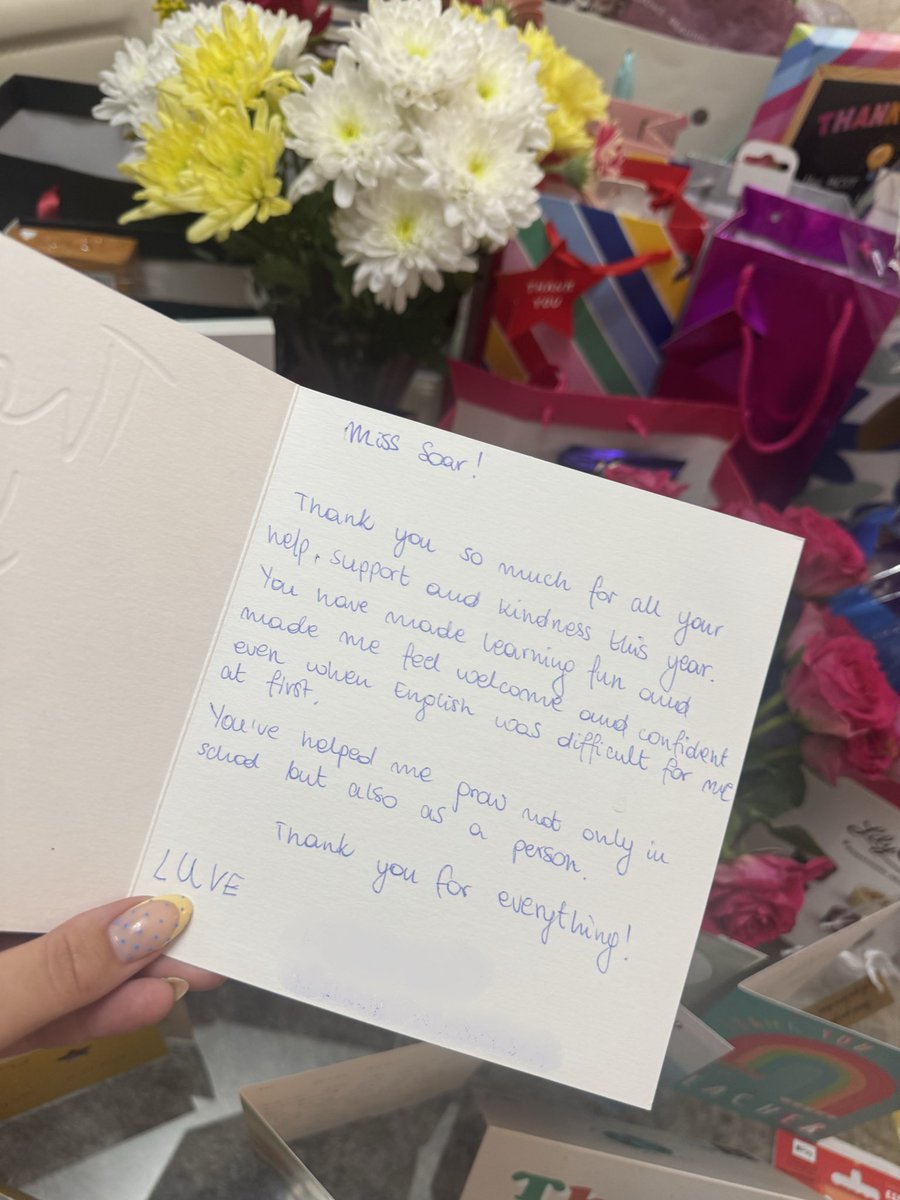 Miss Soar!
Thank you so much for all your
help, support and kindness this year.
You have made learning fun and
made me feel welcome and confident
even when English was difficult for me
at first.
You've helped me grow not only in
school but also as a person.
Thank you for everything!
LUVE
THANK
THANK
YOU
THANK YOU
TEACHER